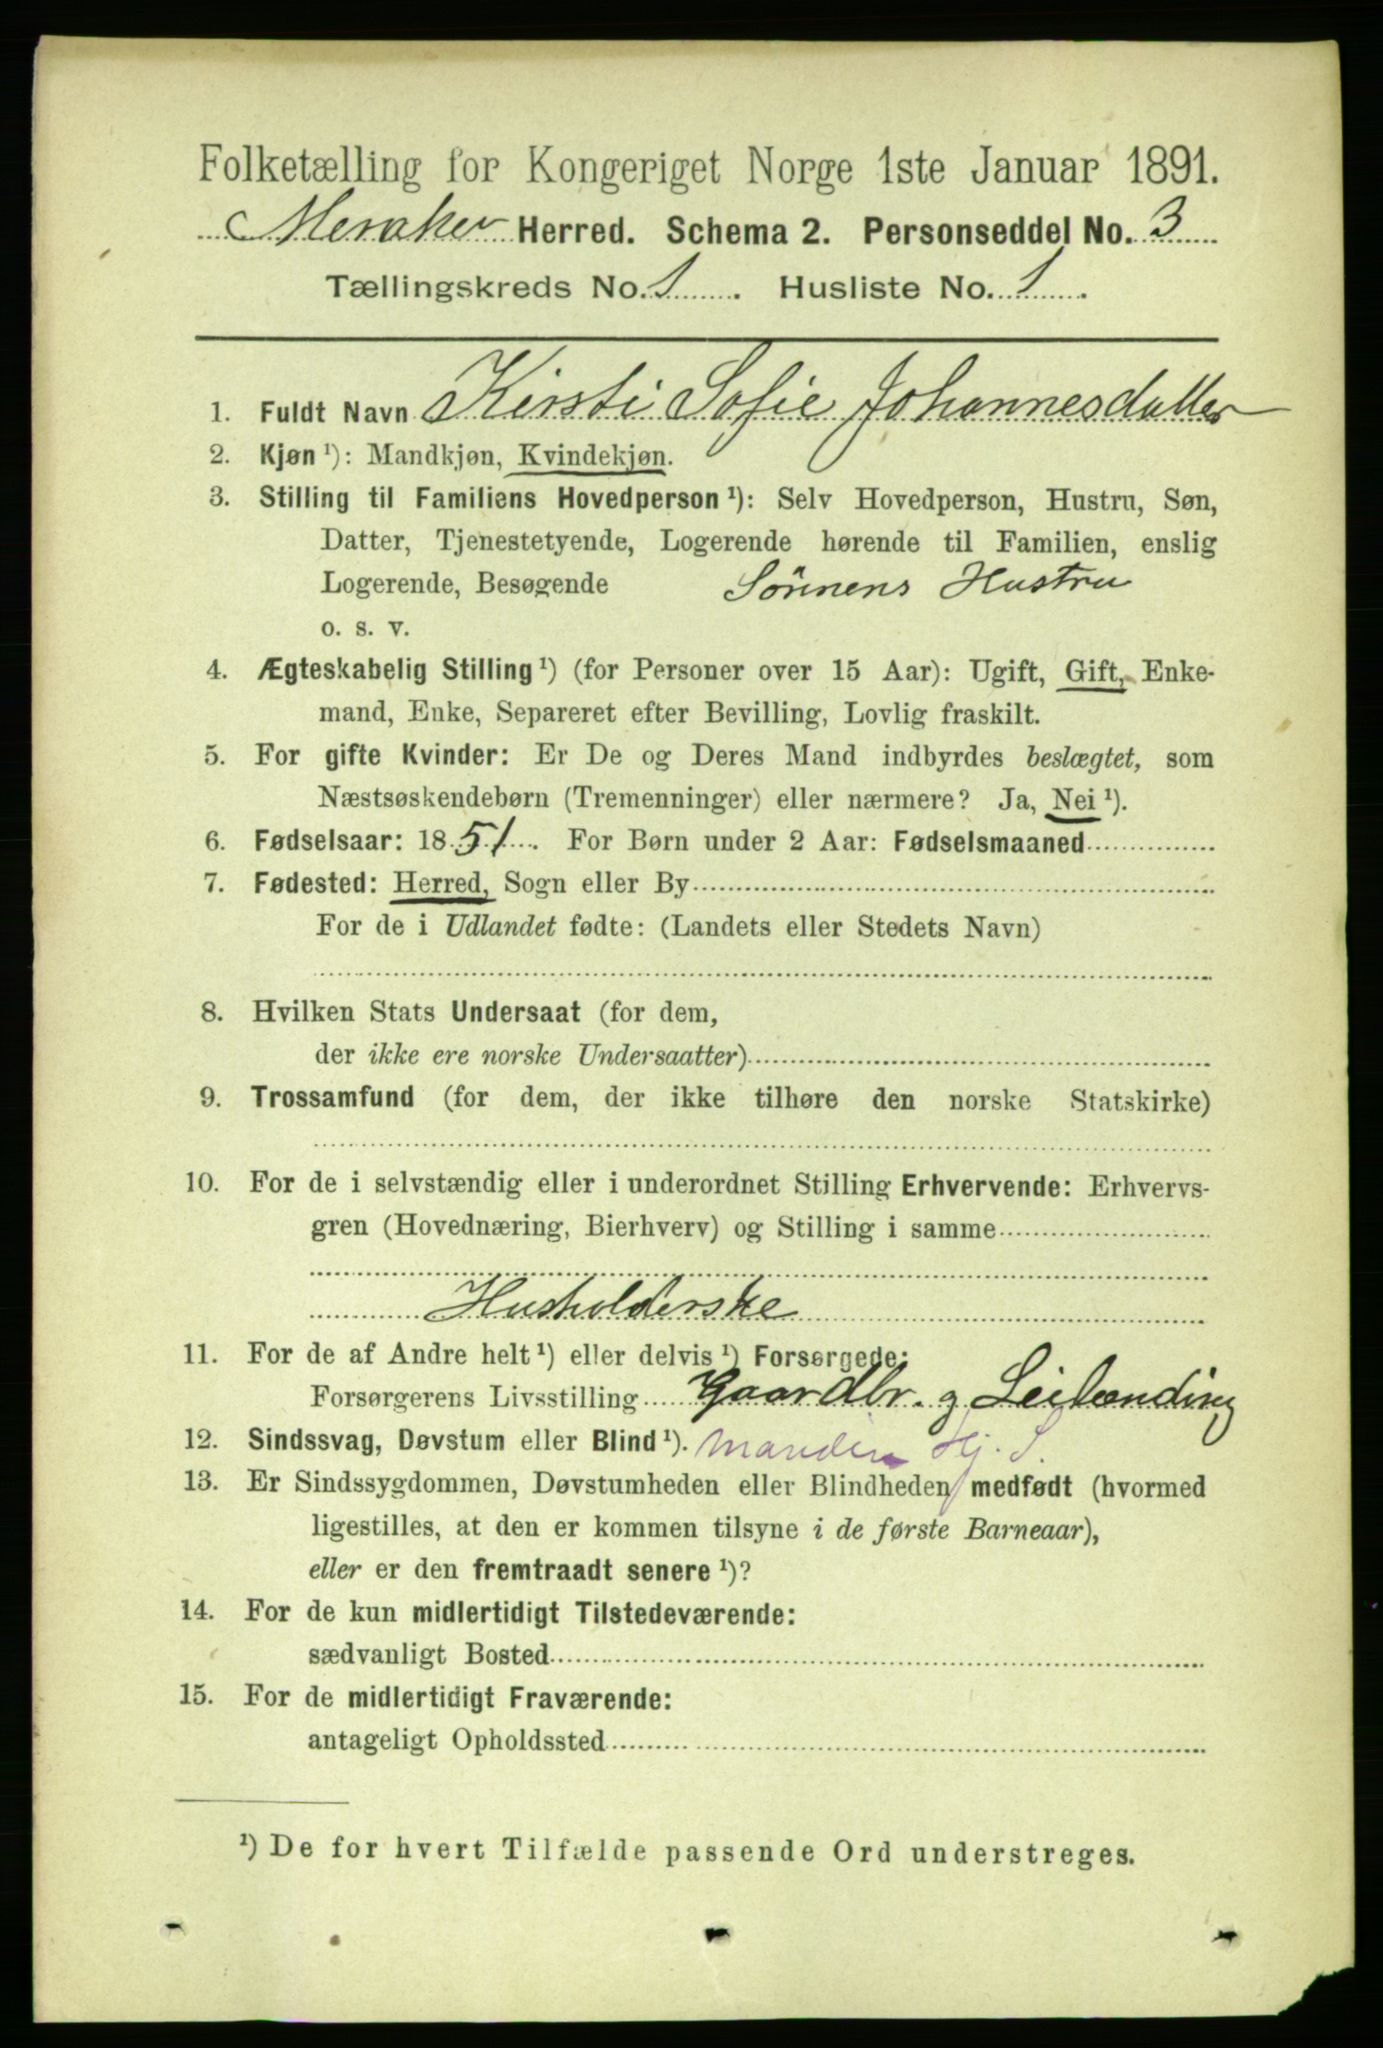 Folketælling for Kongeriget Norge 1ste Januar 1891.
Meraker Herred. Schema 2. Personseddel No. 3
Tællingskreds No. 1. Husliste No. 1.
1. Fuldt Navn Kirsti Sofie Johannesdatter
2. Kjøn ¹): Mandkjøn, Kvindekjøn.
3. Stilling til Familiens Hovedperson ¹): Selv Hovedperson, Hustru, Søn,
Datter, Tjenestetyende, Logerende hørende til Familien, enslig
Logerende, Besøgende Sönnens Hustru
o. s. v.
4. Ægteskabelig Stilling ¹) (for Personer over 15 Aar): Ugift, Gift, Enke-
mand, Enke, Separeret efter Bevilling, Lovlig fraskilt.
5. For gifte Kvinder: Er De og Deres Mand indbyrdes beslægtet, som
Næstsøskendebørn (Tremenninger) eller nærmere? Ja, Nei ¹).
6. Fødselsaar: 1851. For Børn under 2 Aar: Fødselsmaaned
7. Fødested: Herred, Sogn eller By
For de i Udlandet fødte: (Landets eller Stedets Navn)
8. Hvilken Stats Undersaat (for dem,
der ikke ere norske Undersaatter)
9. Trossamfund (for dem, der ikke tilhøre den norske Statskirke)
10. For de i selvstændig eller i underordnet Stilling Erhvervende: Erhvervs-
gren (Hovednæring, Bierhverv) og Stilling i samme
Husholderske
11. For de af Andre helt ¹) eller delvis ¹) Forsørgede:
Forsørgerens Livsstilling Gaardbr. og Leilænding
12. Sindssvag, Døvstum eller Blind ¹). Manden Hj. S.
13. Er Sindssygdommen, Døvstumheden eller Blindheden medfødt (hvormed
ligestilles, at den er kommen tilsyne i de første Barneaar),
eller er den fremtraadt senere ¹)?
14. For de kun midlertidigt Tilstedeværende:
sædvanligt Bosted
15. For de midlertidigt Fraværende:
antageligt Opholdssted
¹) De for hvert Tilfælde passende Ord understreges.